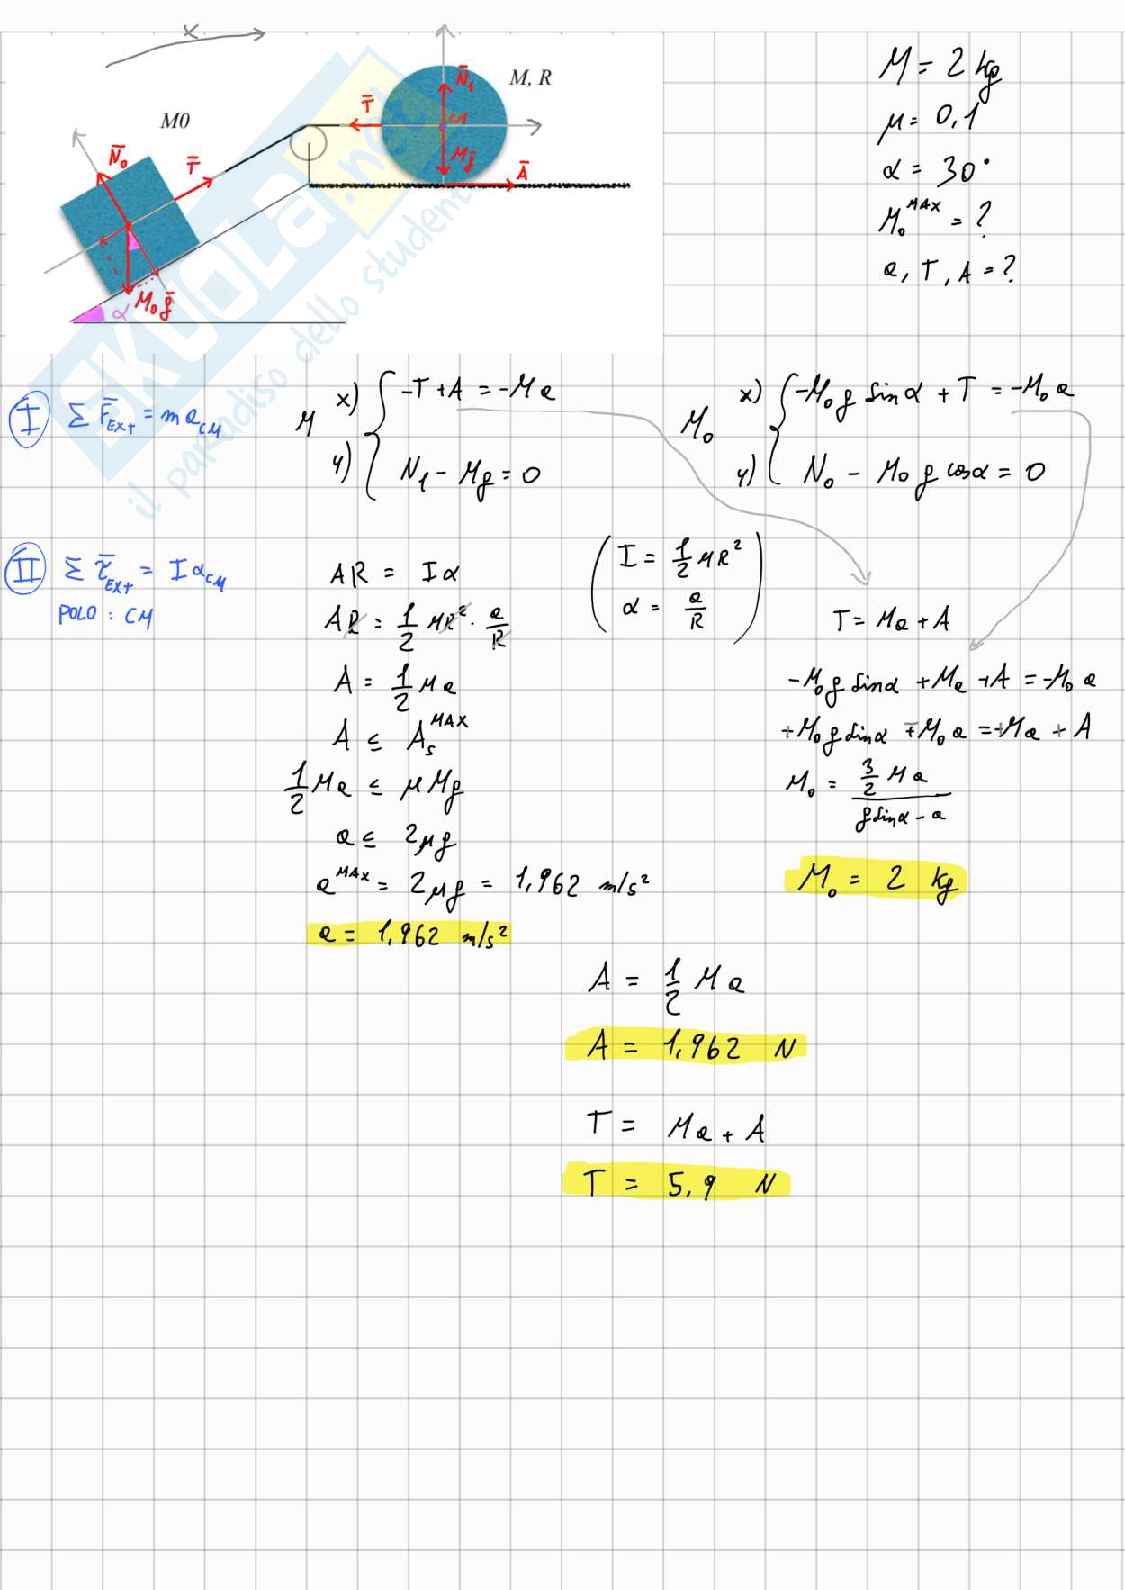 x
M0
M, R
N̄₀
T̄
T̄
N̄₁
CM
Mḡ
Ā
M₀ḡ
α
SKUOLA.net
il paradiso dello studente
M = 2 kg
μ = 0,1
α = 30°
M₀ᴹᴬˣ = ?
a, T, A = ?
I Σ F̄_EXT = m a_CM
M x) { -T + A = -Ma
y) { N₁ - Mg = 0
M₀ x) { -M₀g sinα + T = -M₀a
y) { N₀ - M₀g cosα = 0
II Σ τ̄_EXT = I α_CM
POLO : CM
AR = Iα
AR = 1/2 MR² · a/R
A = 1/2 Ma
A ≤ A_sᴹᴬˣ
1/2 Ma ≤ μMg
a ≤ 2μg
aᴹᴬˣ = 2μg = 1,962 m/s²
a = 1,962 m/s²
( I = 1/2 MR²
α = a/R )
T = Ma + A
-M₀g sinα + Ma + A = -M₀a
+M₀g sinα - M₀a = +Ma + A
M₀ = 3/2 Ma / g sinα - a
M₀ = 2 kg
A = 1/2 Ma
A = 1,962 N
T = Ma + A
T = 5,9 N